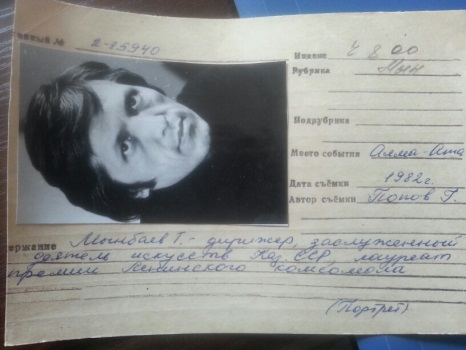 2-85940
Рубрика
Подрубрика
Место события Алма-Ата
Дата съёмки 1982г.
Автор съёмки Попов Г.
Мынбаев Т. - дирижер, заслуженный
деятель искусств Каз ССР, лауреат
премии Ленинского комсомола
(Портрет)